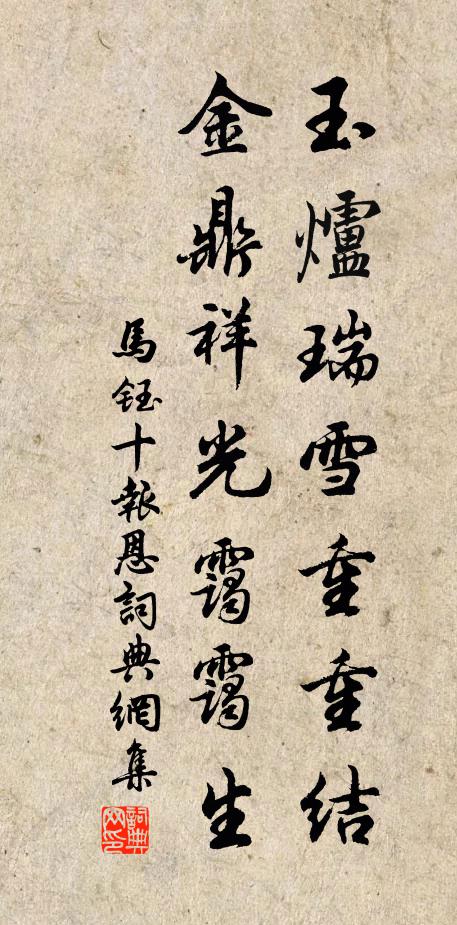 玉爐瑞雪重重結
金鼎祥光靄靄生
馬鈺十報恩詞典網集
詞典网印